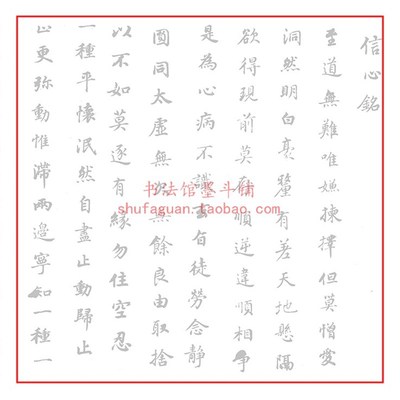 信心銘
至道無難唯嫌揀擇但莫憎愛
洞然明白毫釐有差天地懸隔
欲得現前莫存順逆違順相爭
是為心病不識玄旨徒勞念靜
圓同太虛無欠無餘良由取捨
以不如莫逐有緣勿住空忍
一種平懷泯然自盡止動歸止
止更弥動惟滯兩邊寧知一種一
书法馆墨斗铺
shufaguan.taobao.com